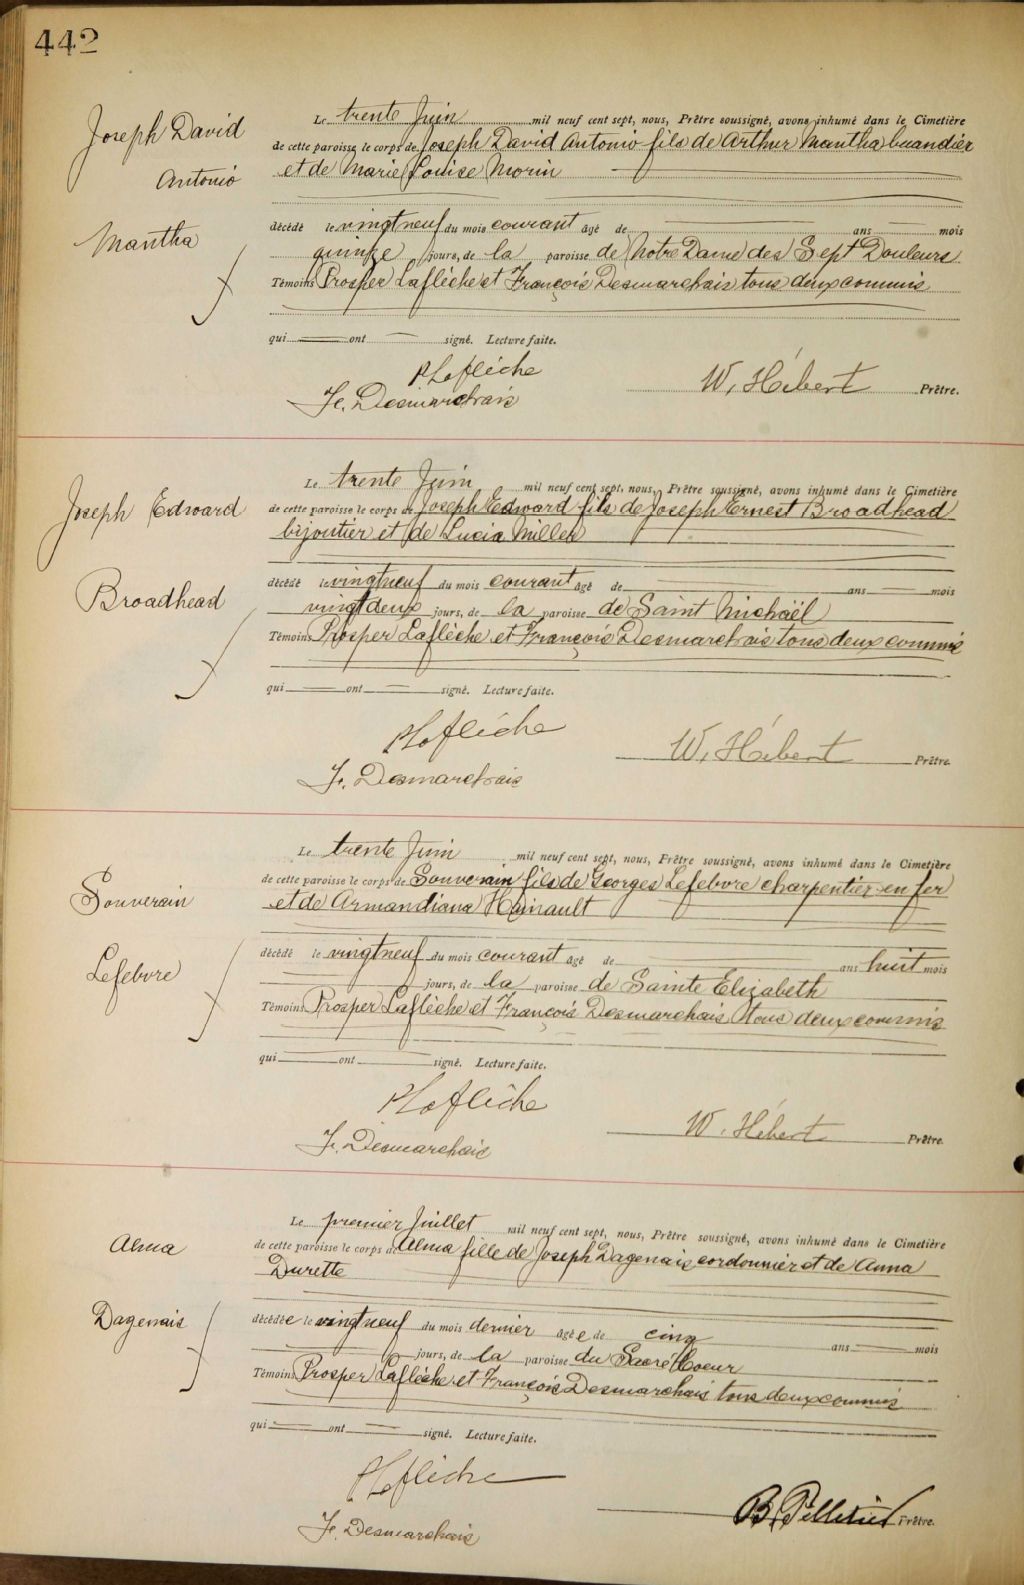 442
Joseph David
Antonio
Mantha
Le trente Juin mil neuf cent sept, nous, Prêtre soussigné, avons inhumé dans le Cimetière
de cette paroisse le corps de Joseph David Antonio fils de Arthur Mantha buandier
et de Marie Louise Morin
décédé le vingt neuf du mois courant âgé de ans mois
quinze jours, de la paroisse de Notre Dame des Sept Douleurs
Témoins Prosper Laflèche et François Desmarchais tous deux commis
qui ont signé. Lecture faite.
PLaflèche
Fr. Desmarchais
W. Hébert Prêtre.
Joseph Edward
Broadhead
Le trente Juin mil neuf cent sept, nous, Prêtre soussigné, avons inhumé dans le Cimetière
de cette paroisse le corps de Joseph Edward fils de Joseph Ernest Broadhead
bijoutier et de Lucia Miller
décédé le vingt neuf du mois courant âgé de ans mois
vingt deux jours, de la paroisse de Saint Michaël
Témoins Prosper Laflèche et François Desmarchais tous deux commis
qui ont signé. Lecture faite.
PLaflèche
Fr. Desmarchais
W. Hébert Prêtre.
Souverain
Lefebvre
Le trente Juin mil neuf cent sept, nous, Prêtre soussigné, avons inhumé dans le Cimetière
de cette paroisse le corps de Souverain fils de Georges Lefebvre charpentier en fer
et de Armandiana Hainault
décédé le vingt neuf du mois courant âgé de ans huit mois
jours, de la paroisse de Sainte Elizabeth
Témoins Prosper Laflèche et François Desmarchais tous deux commis
qui ont signé. Lecture faite.
PLaflèche
Fr. Desmarchais
W. Hébert Prêtre.
Alma
Dagenais
Le premier Juillet mil neuf cent sept, nous, Prêtre soussigné, avons inhumé dans le Cimetière
de cette paroisse le corps de Alma fille de Joseph Dagenais cordonnier et de Anna
Durette
décédée le vingt neuf du mois dernier âgée de cinq ans mois
jours, de la paroisse du Sacré Coeur
Témoins Prosper Laflèche et François Desmarchais tous deux commis
qui ont signé. Lecture faite.
PLaflèche
Fr. Desmarchais
B. Pelletier Prêtre.